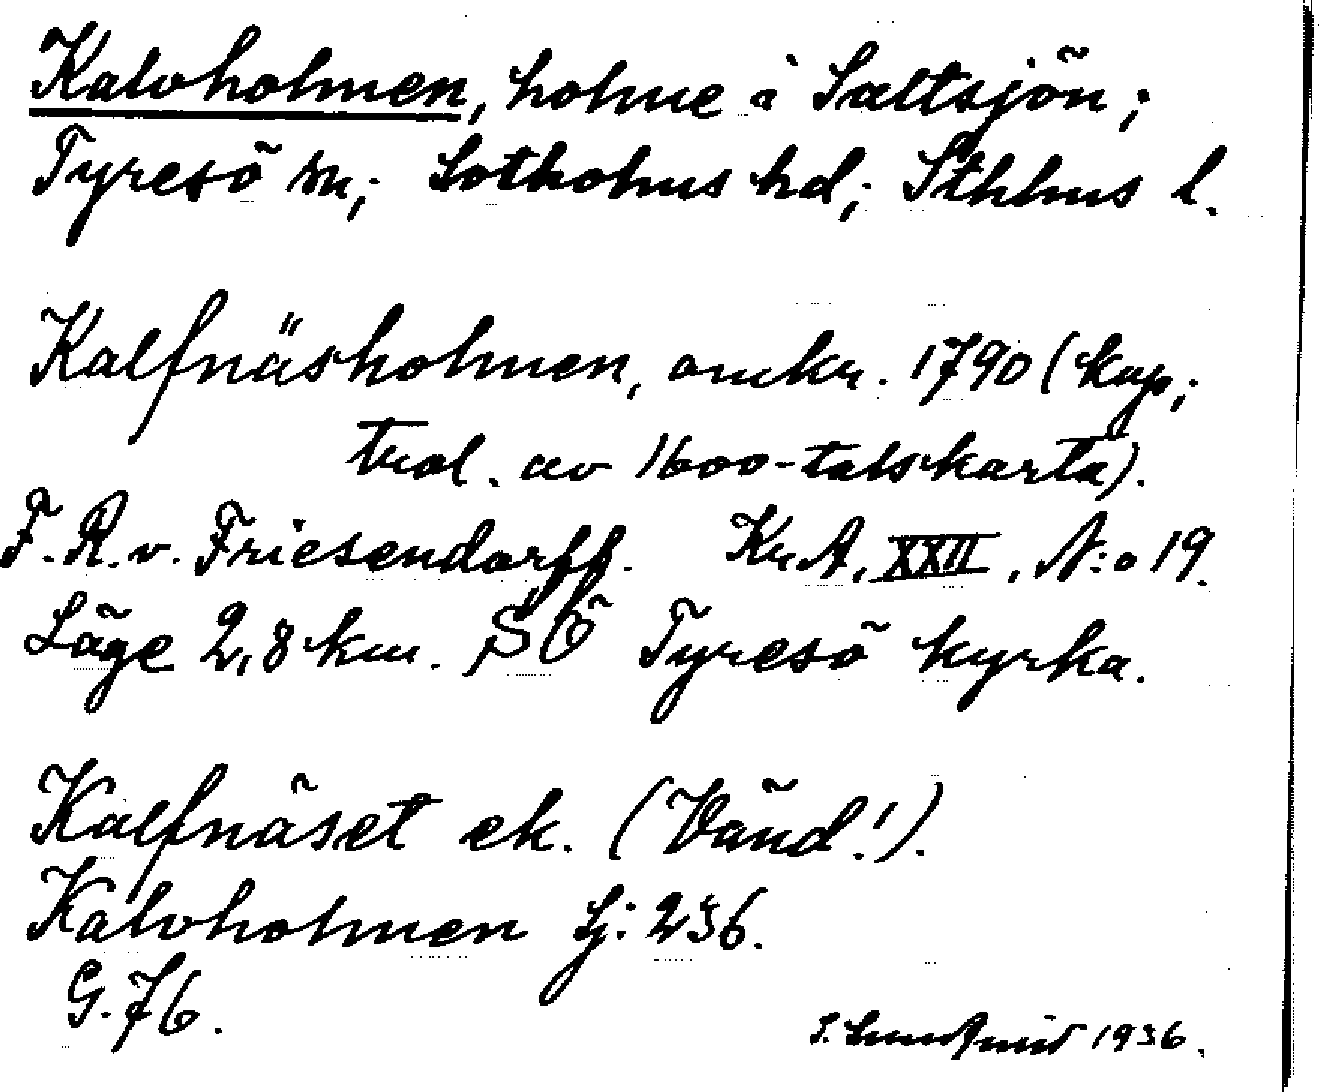 Kalvholmen, holme i Saltsjön;
Tyresö sn; Sotholms hd; Sthlms l.
Kalfnäsholmen, omkr. 1790 (kop;
trol. av 1600-talskarta).
F. R. v. Friesendorff. Kr. A, XXII, N:o 19.
Läge 2,8 km. SÖ Tyresö kyrka.
Kalfnäset ek. (Vänd!).
Kalvholmen Lj: 236.
G. 76.
1936.